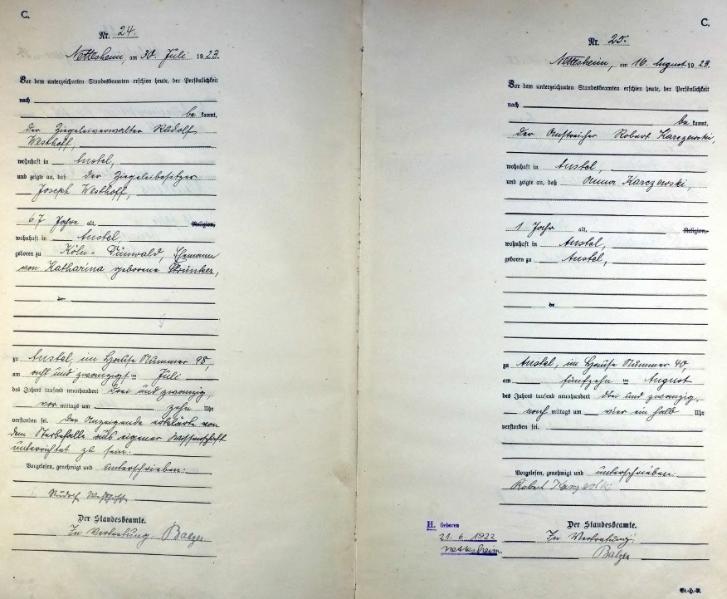 C.
Nr. 24.
Nettesheim, am 30. Juli 1923.
Vor dem unterzeichneten Standesbeamten erschien heute, der Persönlichkeit
nach
be kannt,
der Ziegeleiverwalter Rudolf
Westhoff,
wohnhaft in Anstel,
und zeigte an, daß der Ziegeleibesitzer
Joseph Westhoff,
67 Jahre alt, Religion,
wohnhaft in Anstel,
geboren zu Köln-Dünnwald, Ehemann
von Katharina geborene Strünker,
zu Anstel, im Hause Nummer 98,
am acht und zwanzigsten Juli
des Jahres tausend neunhundert drei und zwanzig,
vor mittags um zehn Uhr
verstorben sei. Der Anzeigende erklärte von
dem Sterbefalle aus eigener Wissenschaft
unterrichtet zu sein.
Vorgelesen, genehmigt und unterschrieben:
Rudolf Westhoff
Der Standesbeamte.
In Vertretung. Balzer
C.
Nr. 25.
Nettesheim, am 16. August 1923.
Vor dem unterzeichneten Standesbeamten erschien heute, der Persönlichkeit
nach
be kannt,
der Anstreicher Robert Karczewski,
wohnhaft in Anstel,
und zeigte an, daß Anna Karczewski,
1 Jahr alt, Religion,
wohnhaft in Anstel,
geboren zu Anstel,
zu Anstel, im Hause Nummer 40,
am fünfzehn ten August
des Jahres tausend neunhundert drei und zwanzig,
nach mittags um vier ein halb Uhr
verstorben sei.
Vorgelesen, genehmigt und unterschrieben:
Robert
Der Standesbeamte.
In Vertretung:
Balzer
H. Geboren
21. 6. 1922
Nettesheim